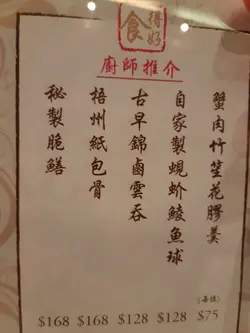 食得好
廚師推介
蟹肉竹笙花膠羹
(每位)
$75
自家製蜆蚧鯪魚球
$128
古早錦鹵雲吞
$128
梧州紙包骨
$168
秘製脆鱔
$168